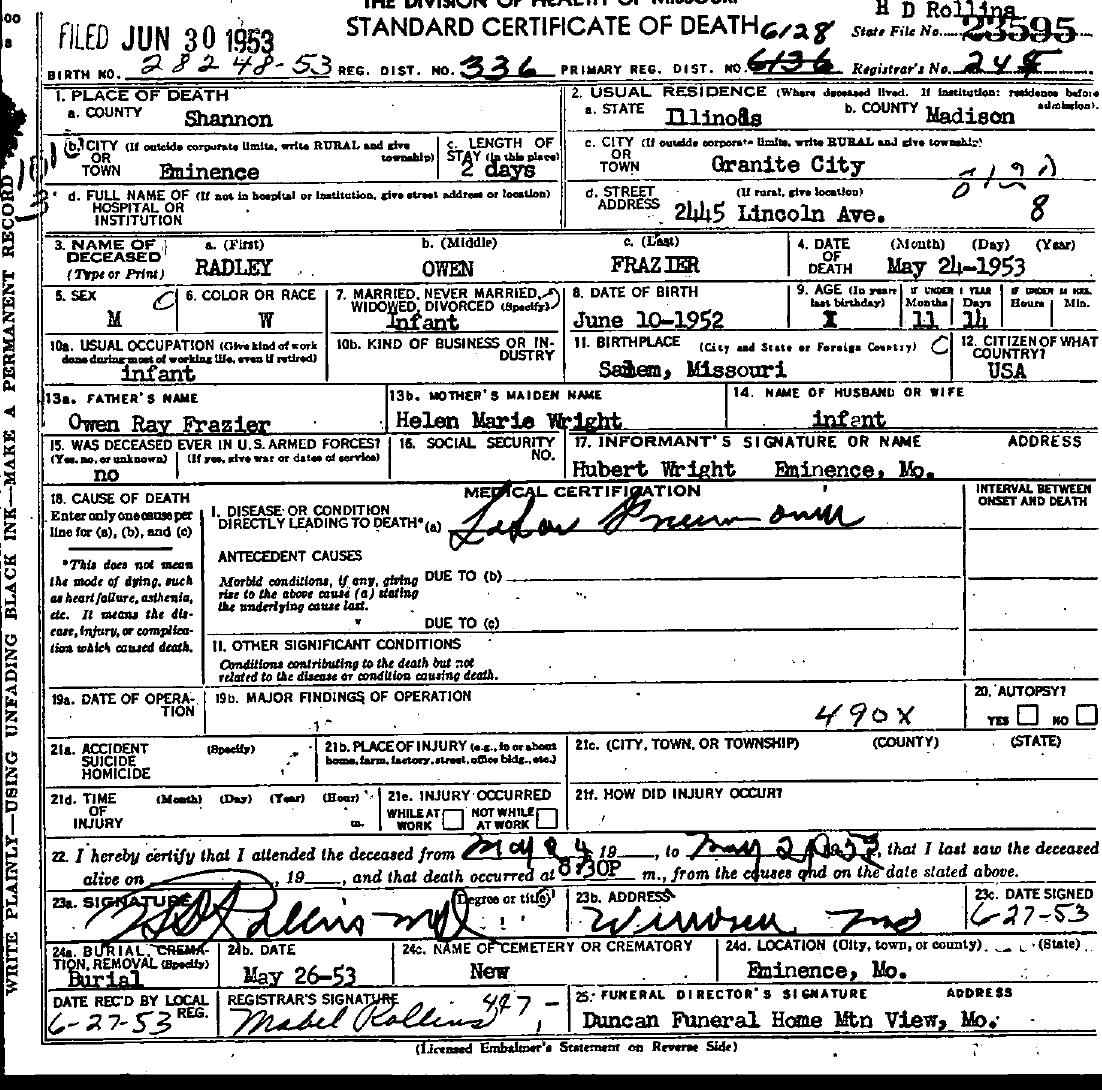 THE DIVISION OF HEALTH OF MISSOURI
H D Rollins
STANDARD CERTIFICATE OF DEATH
FILED JUN 30 1953
6128
State File No. 23595
BIRTH NO. 28248-53 REG. DIST. NO. 336 PRIMARY REG. DIST. NO. 6136 Registrar's No.
WRITE PLAINLY—USING UNFADING BLACK INK—MAKE A PERMANENT RECORD
1. PLACE OF DEATH
a. COUNTY
Shannon
b. CITY (If outside corporate limits, write RURAL and give township)
OR
TOWN Eminence
c. LENGTH OF
STAY (in this place)
2 days
d. FULL NAME OF (If not in hospital or institution, give street address or location)
HOSPITAL OR
INSTITUTION
2. USUAL RESIDENCE (Where deceased lived. If institution: residence before admission).
a. STATE Illinois b. COUNTY Madison
c. CITY (If outside corporate limits, write RURAL and give township)
OR
TOWN Granite City
d. STREET (If rural, give location)
ADDRESS 2445 Lincoln Ave.
8
3. NAME OF
DECEASED
(Type or Print)
a. (First) b. (Middle) c. (Last)
RADLEY OWEN FRAZIER
4. DATE (Month) (Day) (Year)
OF
DEATH May 24-1953
5. SEX
M
6. COLOR OR RACE
W
7. MARRIED, NEVER MARRIED,
WIDOWED, DIVORCED (Specify)
Infant
8. DATE OF BIRTH
June 10-1952
9. AGE (In years last birthday) IF UNDER 1 YEAR IF UNDER 24 HRS.
Months Days Hours Min.
X 11 14
10a. USUAL OCCUPATION (Give kind of work
done during most of working life, even if retired)
infant
10b. KIND OF BUSINESS OR INDUSTRY
11. BIRTHPLACE (City and State or Foreign Country)
Salem, Missouri
12. CITIZEN OF WHAT
COUNTRY?
USA
13a. FATHER'S NAME
Owen Ray Frazier
13b. MOTHER'S MAIDEN NAME
Helen Marie Wright
14. NAME OF HUSBAND OR WIFE
infant
15. WAS DECEASED EVER IN U.S. ARMED FORCES?
(Yes, no, or unknown) (If yes, give war or dates of service)
no
16. SOCIAL SECURITY
NO.
17. INFORMANT'S SIGNATURE OR NAME ADDRESS
Hubert Wright Eminence, Mo.
18. CAUSE OF DEATH
Enter only one cause per
line for (a), (b), and (c)
*This does not mean
the mode of dying, such
as heart failure, asthenia,
etc. It means the dis-
ease, injury, or complica-
tion which caused death.
MEDICAL CERTIFICATION
INTERVAL BETWEEN
ONSET AND DEATH
I. DISEASE OR CONDITION
DIRECTLY LEADING TO DEATH* (a) Lobar Pneumonia
ANTECEDENT CAUSES
Morbid conditions, if any, giving
rise to the above cause (a) stating
the underlying cause last.
DUE TO (b)
DUE TO (c)
II. OTHER SIGNIFICANT CONDITIONS
Conditions contributing to the death but not
related to the disease or condition causing death.
19a. DATE OF OPERA-
TION
19b. MAJOR FINDINGS OF OPERATION
490X
20. AUTOPSY?
YES NO
21a. ACCIDENT (Specify)
SUICIDE
HOMICIDE
21b. PLACE OF INJURY (e.g., in or about
home, farm, factory, street, office bldg., etc.)
21c. (CITY, TOWN, OR TOWNSHIP) (COUNTY) (STATE)
21d. TIME (Month) (Day) (Year) (Hour)
OF
INJURY m.
21e. INJURY OCCURRED
WHILE AT WORK NOT WHILE AT WORK
21f. HOW DID INJURY OCCUR?
22. I hereby certify that I attended the deceased from May 24, 19__, to May 1953, that I last saw the deceased
alive on ______, 19__, and that death occurred at 8:30P m., from the causes and on the date stated above.
23a. SIGNATURE (Degree or title)
H D Rollins MD
23b. ADDRESS
Mo
23c. DATE SIGNED
6-27-53
24a. BURIAL, CREMA-
TION, REMOVAL (Specify)
Burial
24b. DATE
May 26-53
24c. NAME OF CEMETERY OR CREMATORY
New
24d. LOCATION (City, town, or county) (State)
Eminence, Mo.
DATE REC'D BY LOCAL
REG.
6-27-53
REGISTRAR'S SIGNATURE
Mabel Rollins
25. FUNERAL DIRECTOR'S SIGNATURE ADDRESS
Duncan Funeral Home Mtn View, Mo.
(Licensed Embalmer's Statement on Reverse Side)